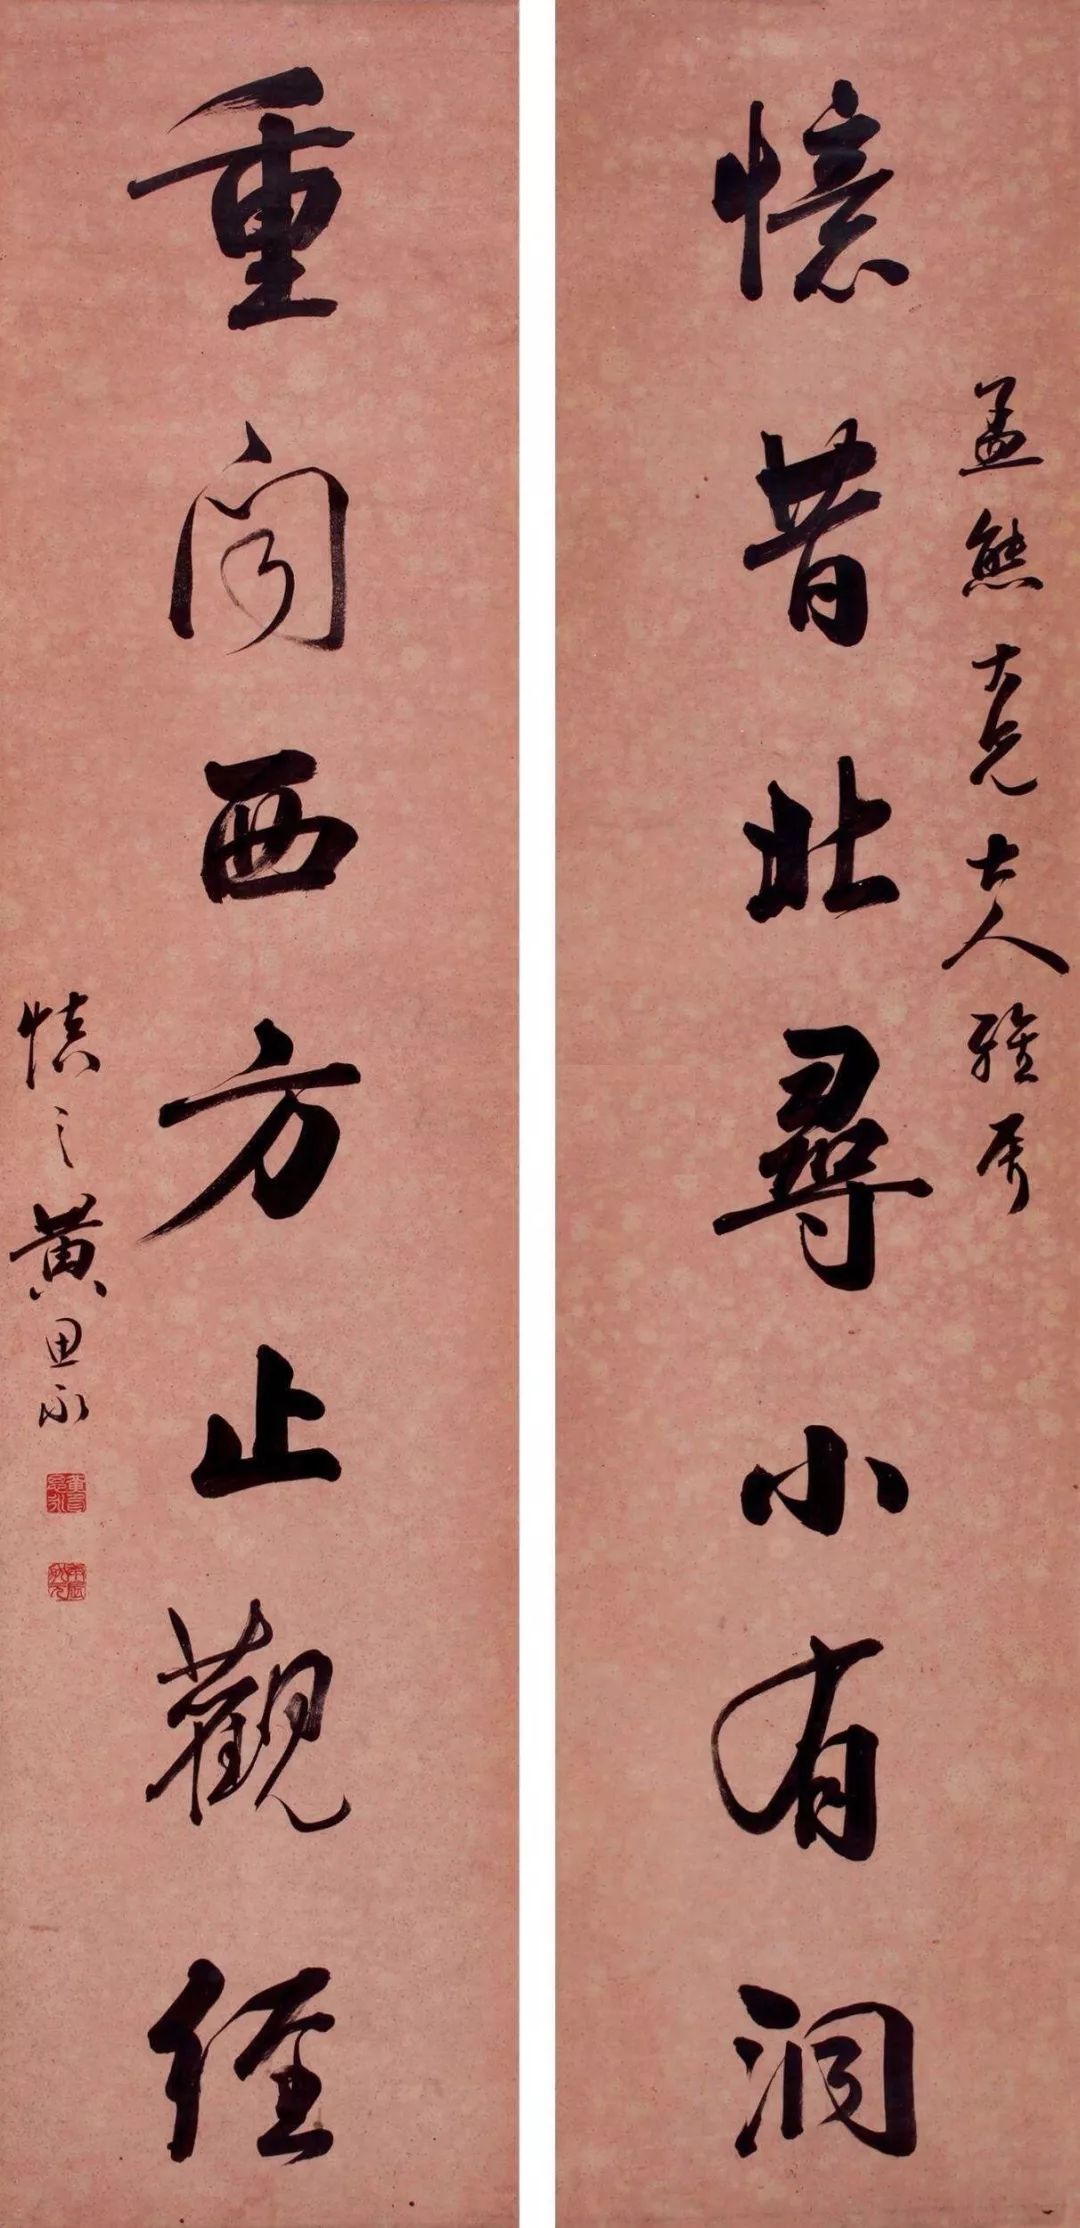 孟熊大兄大人雅属
憶昔北尋小有洞
重聞西方止觀經
慎之黃思永